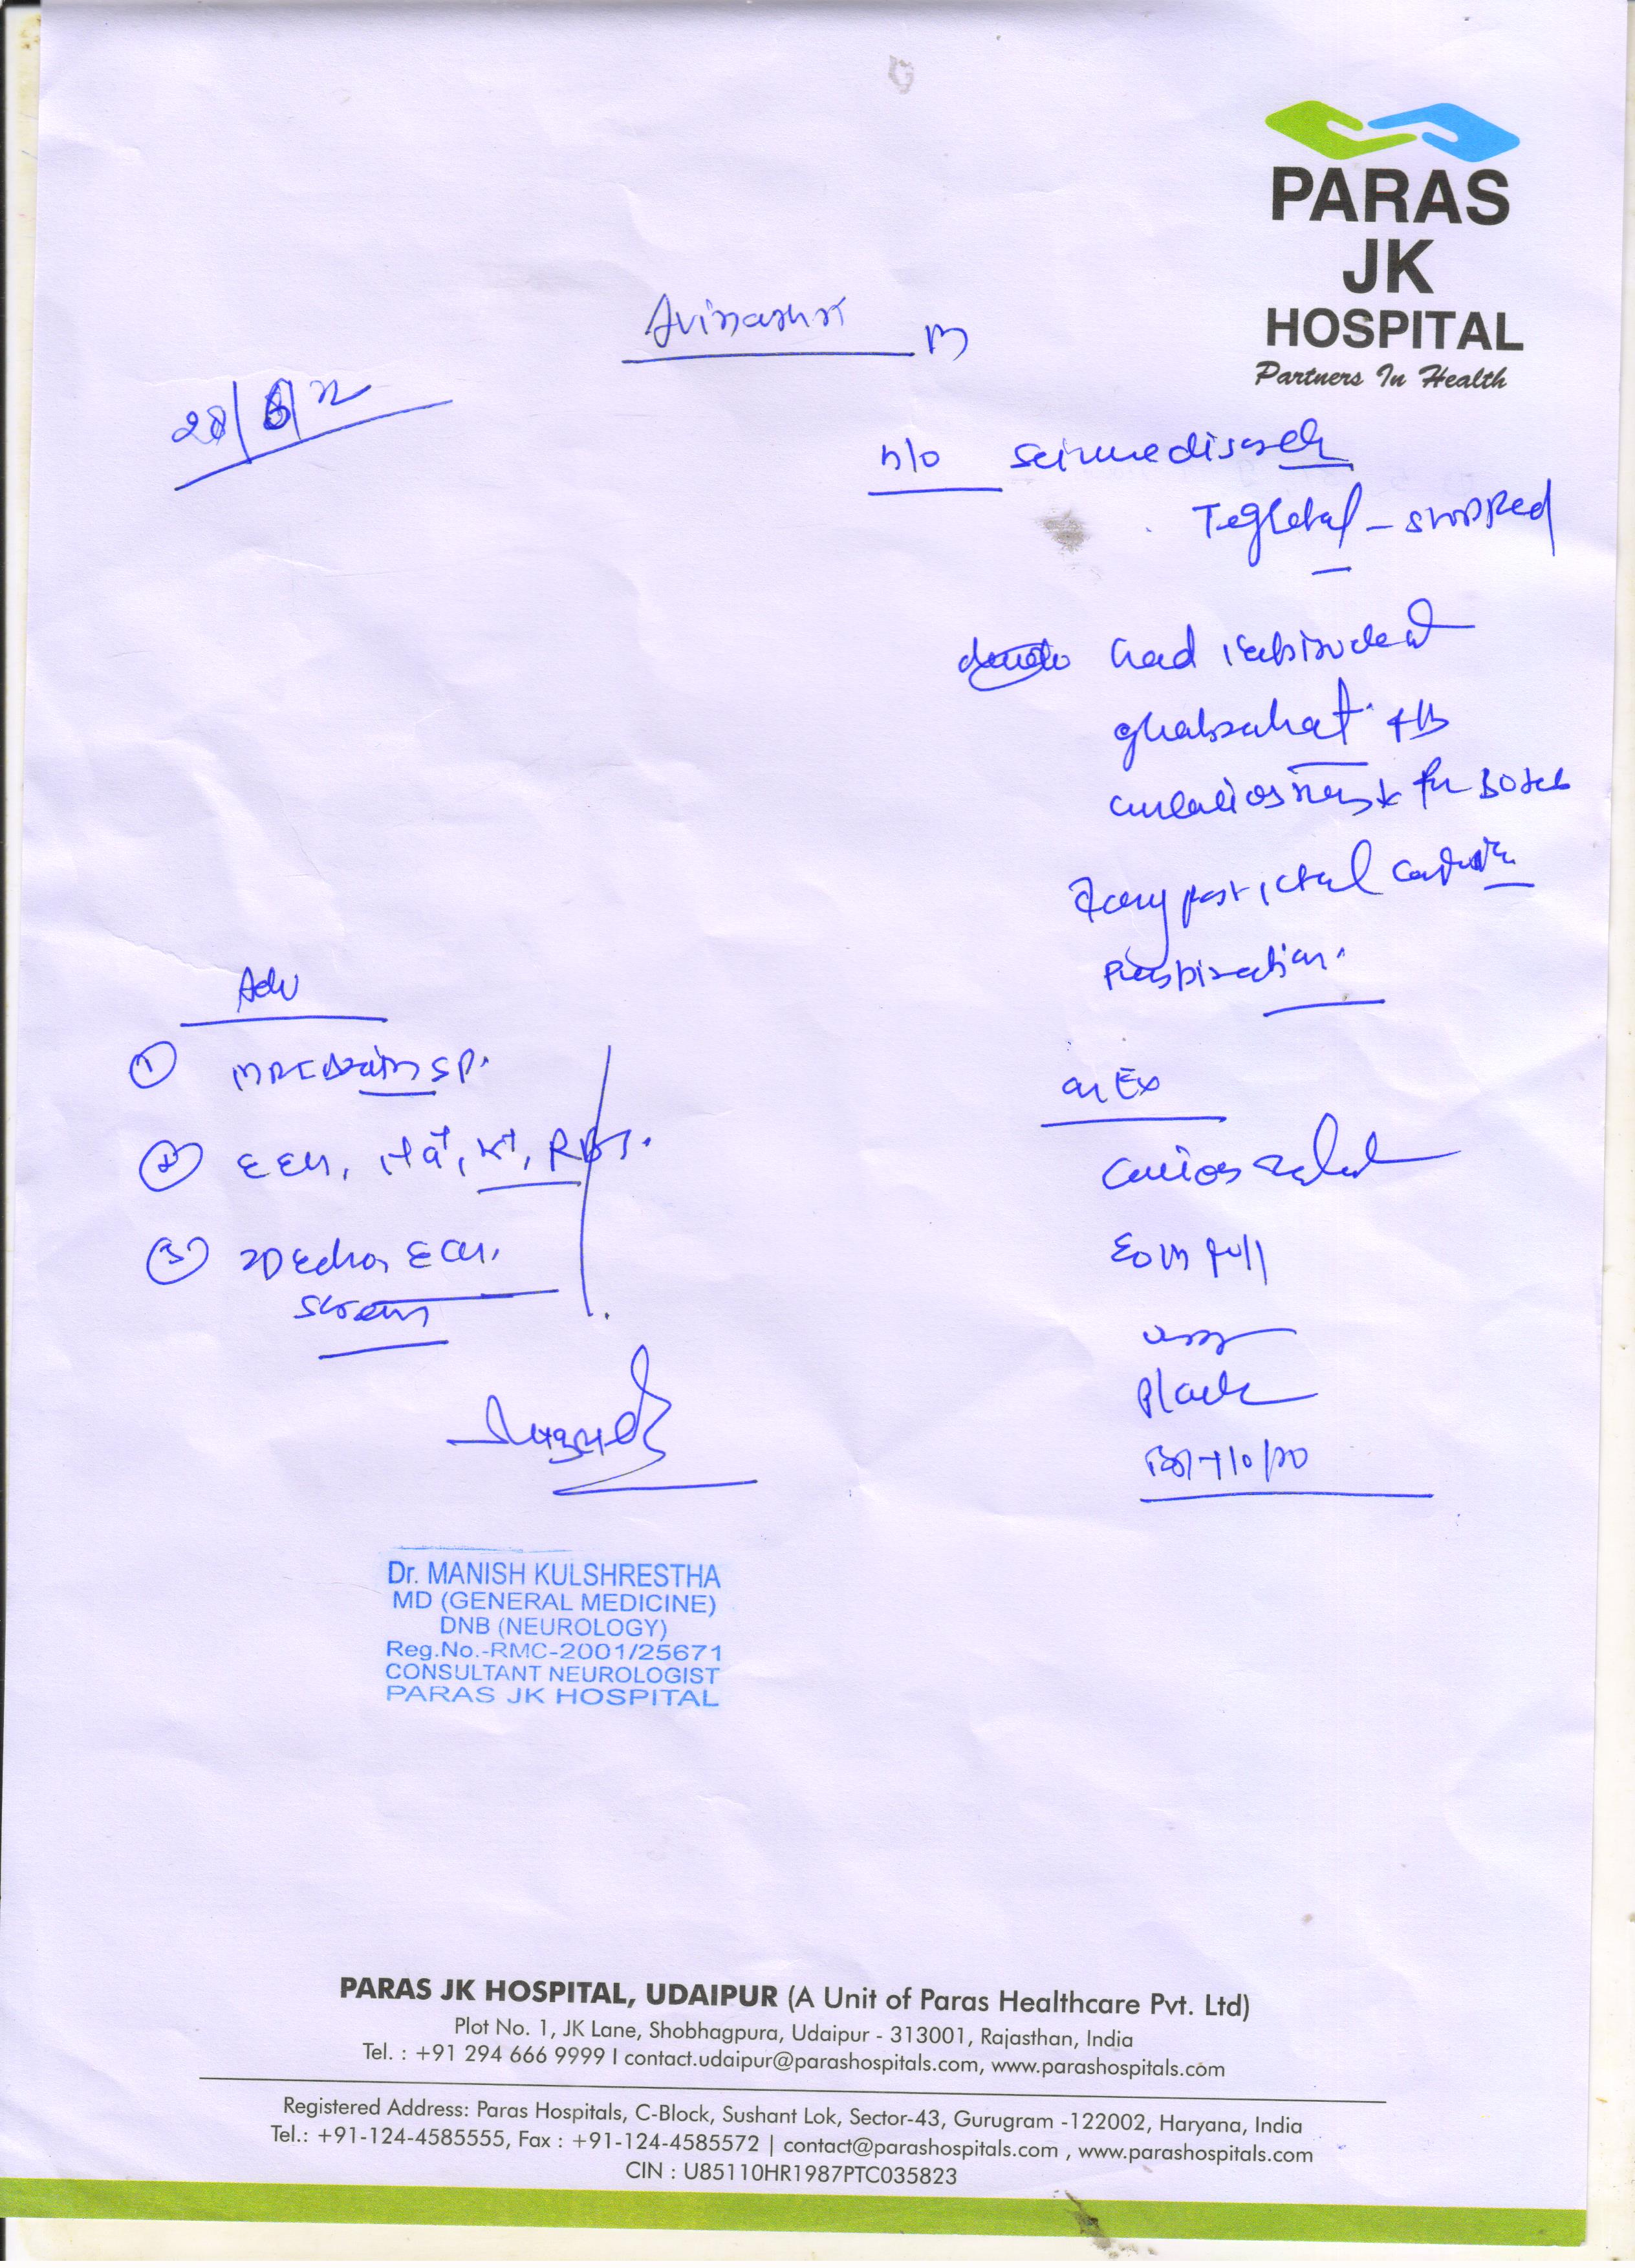 PARAS
JK
HOSPITAL
Partners In Health
Avinash
M
28/6/22
h/o Seizure disorder
Tegretal - stopped
had
ghabrahat f/b
unconsciousness for 30 sec
post ictal confusion
Perspiration.
on Ex
Conscious
EOM full
Adv
① MRI Brain SP.
② EEG, Na+, K+, RBS.
③ 2D Echo, ECG.
Dr. MANISH KULSHRESTHA
MD (GENERAL MEDICINE)
DNB (NEUROLOGY)
Reg.No.-RMC-2001/25671
CONSULTANT NEUROLOGIST
PARAS JK HOSPITAL
PARAS JK HOSPITAL, UDAIPUR (A Unit of Paras Healthcare Pvt. Ltd)
Plot No. 1, JK Lane, Shobhagpura, Udaipur - 313001, Rajasthan, India
Tel. : +91 294 666 9999 I contact.udaipur@parashospitals.com, www.parashospitals.com
Registered Address: Paras Hospitals, C-Block, Sushant Lok, Sector-43, Gurugram -122002, Haryana, India
Tel.: +91-124-4585555, Fax : +91-124-4585572 | contact@parashospitals.com , www.parashospitals.com
CIN : U85110HR1987PTC035823